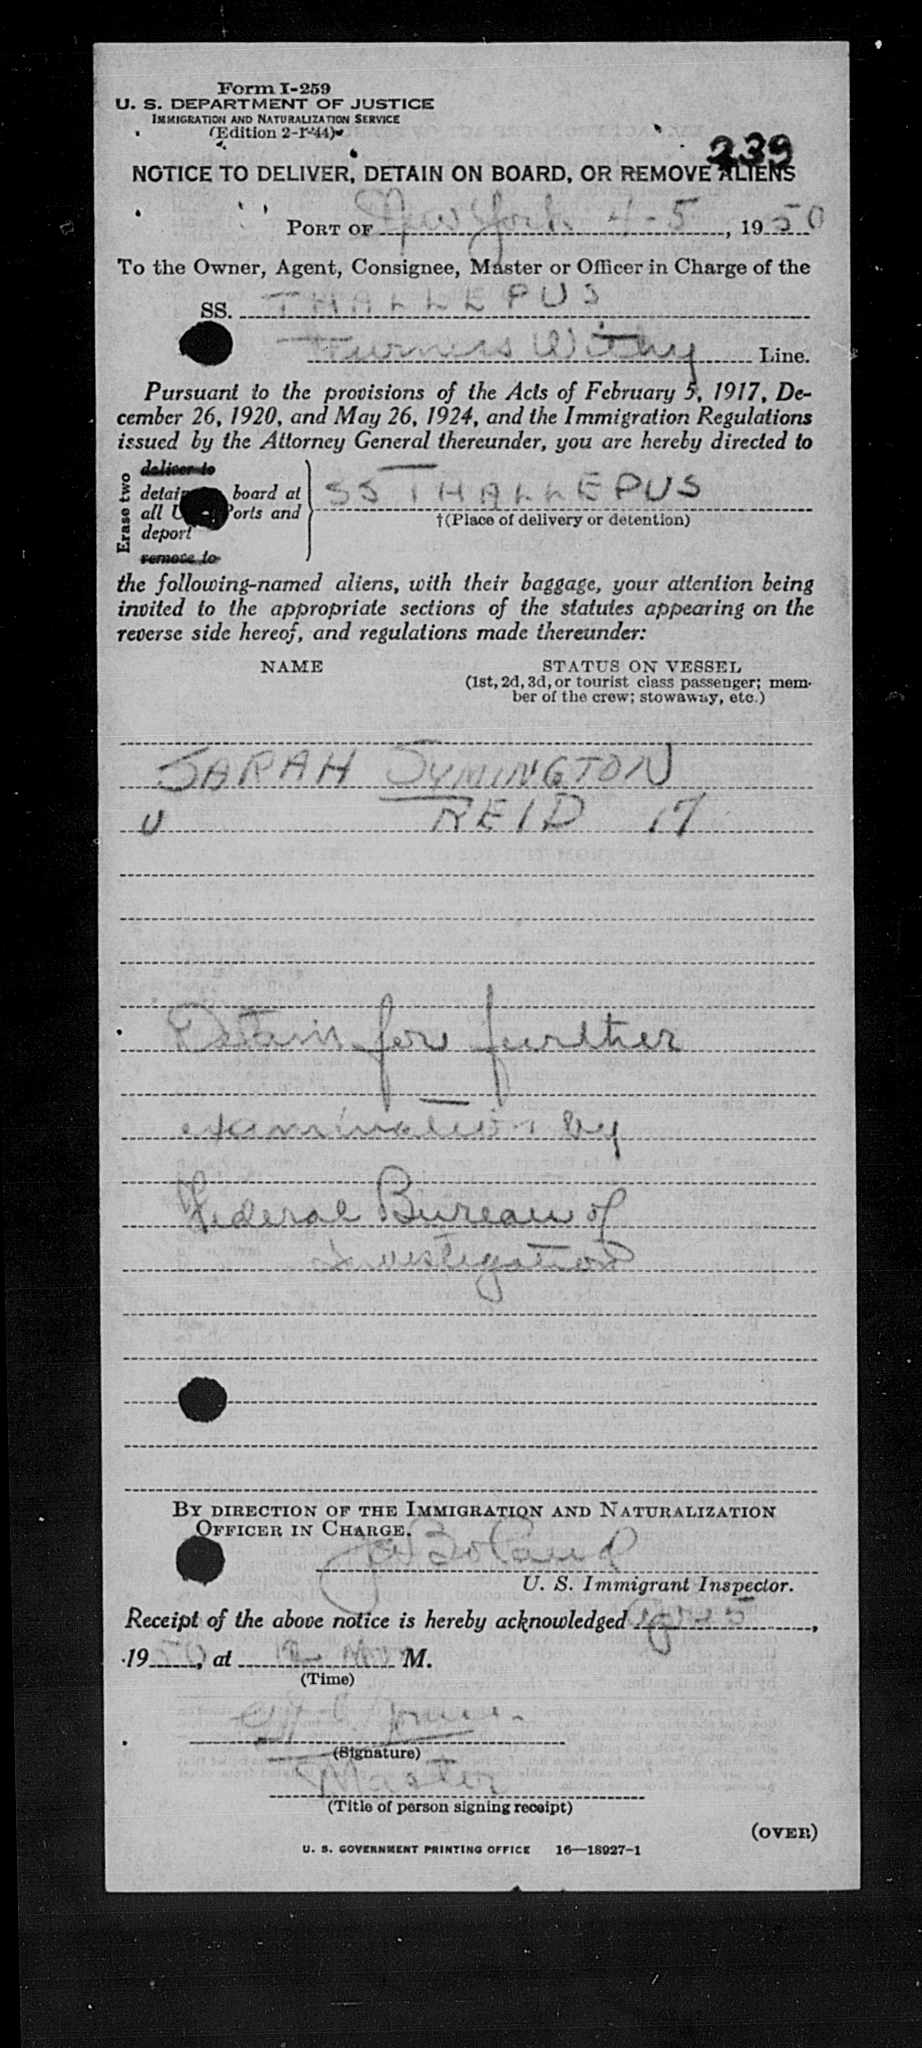 Form I-259
U. S. DEPARTMENT OF JUSTICE
IMMIGRATION AND NATURALIZATION SERVICE
(Edition 2-1-44)
239
NOTICE TO DELIVER, DETAIN ON BOARD, OR REMOVE ALIENS
PORT OF New York 4-5, 1950
To the Owner, Agent, Consignee, Master or Officer in Charge of the
SS. THALLEPUS
Furness Withy Line.
Pursuant to the provisions of the Acts of February 5, 1917, De-
cember 26, 1920, and May 26, 1924, and the Immigration Regulations
issued by the Attorney General thereunder, you are hereby directed to
Erase two
deliver to
detain board at
all U Ports and
deport
remove to
SS THALLEPUS
†(Place of delivery or detention)
the following-named aliens, with their baggage, your attention being
invited to the appropriate sections of the statutes appearing on the
reverse side hereof, and regulations made thereunder:
NAME STATUS ON VESSEL
(1st, 2d, 3d, or tourist class passenger; mem-
ber of the crew; stowaway, etc.)
SARAH SYMINGTON
REID 17
Detain for further
examination by
Federal Bureau of
Investigation
BY DIRECTION OF THE IMMIGRATION AND NATURALIZATION
OFFICER IN CHARGE.
U. S. Immigrant Inspector.
Receipt of the above notice is hereby acknowledged 5,
1950, at 12 M.
(Time)
(Signature)
Master
(Title of person signing receipt)
(OVER)
U. S. GOVERNMENT PRINTING OFFICE 16—18927-1